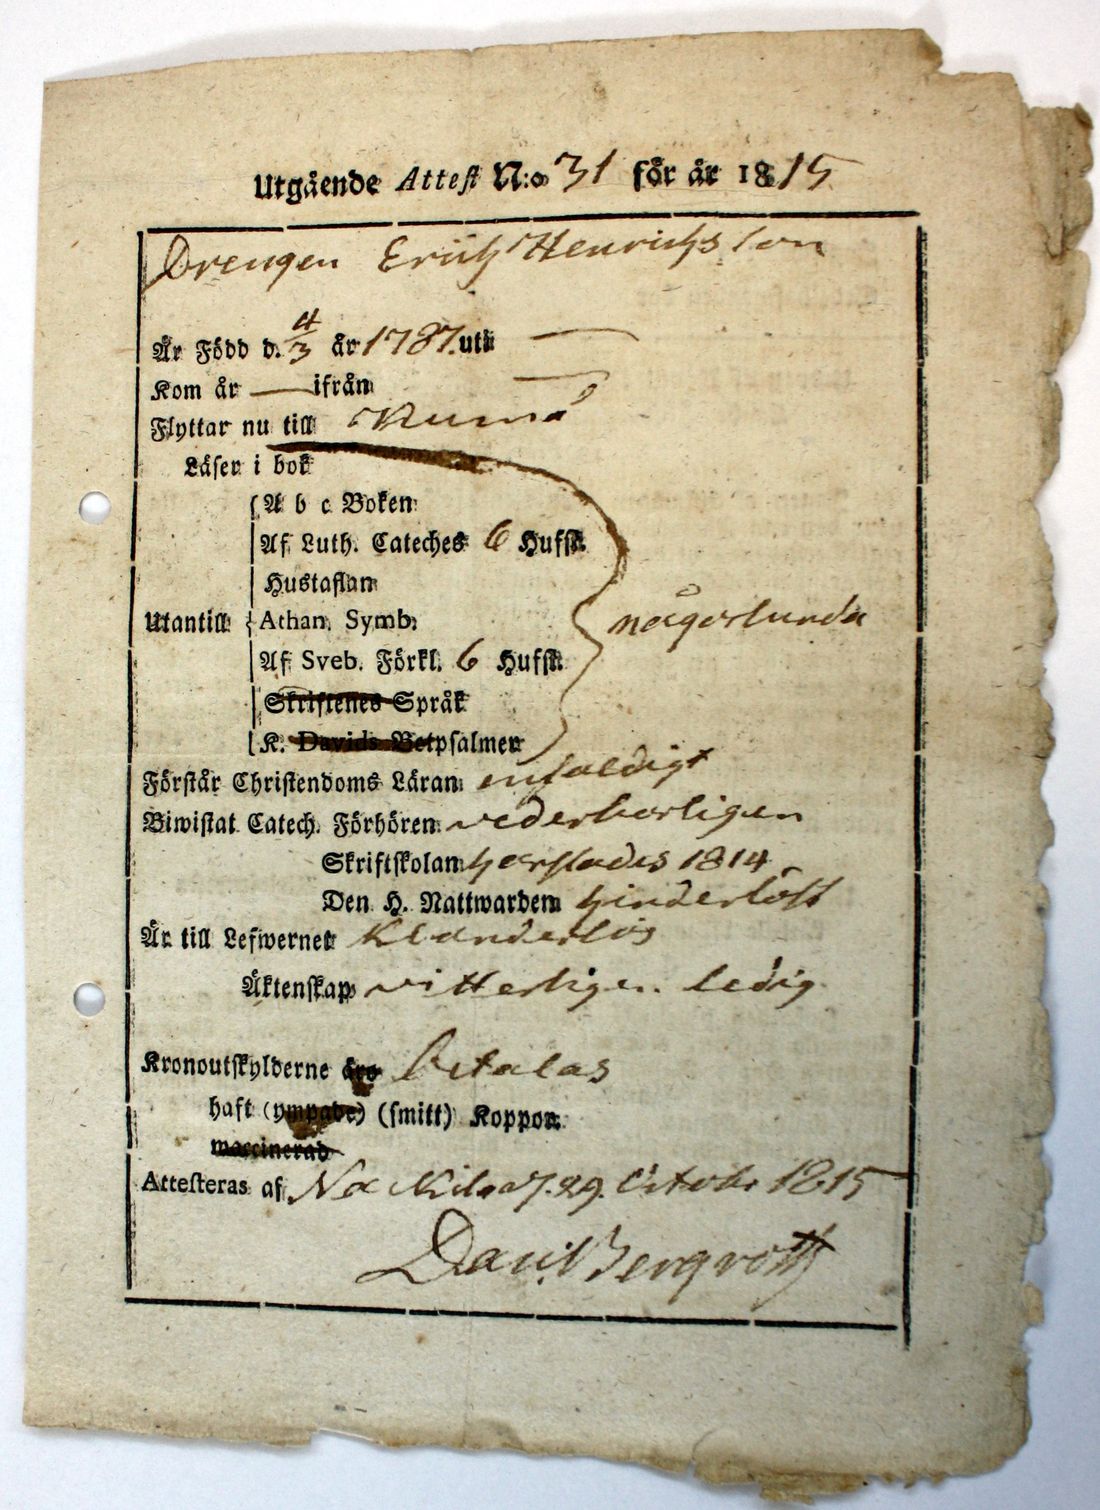 Utgående Attest N:o 31 för år 1815
Drengen Erich Henrichsson
Är Född d. 4/3 år 1787. uti —
Kom år — ifrån —
Flyttar nu till Kumå
Läser i bok
A b c Boken
Af Luth. Cateches 6 Hufst.
Hustaflan
Utantill Athan. Symb. någorlunda
Af Sveb. Förkl. 6 Hufst.
Skriftenes Språk
K. Davids Botpsalmer
Förstår Christendoms Läran enfaldigt
Biwistat Catech. Förhören vederborligen
Skriftskolan 1814
Den H. Nattwarden hinderlöst
Är till Lefwernet Klanderlös
Äktenskap vitterligen ledig
Kronoutskylderne äro betalas
haft (ympade) (smitt) Koppor
waccinerad
Attesteras af Nakkila d. 29. October 1815
Dan: Bergroth